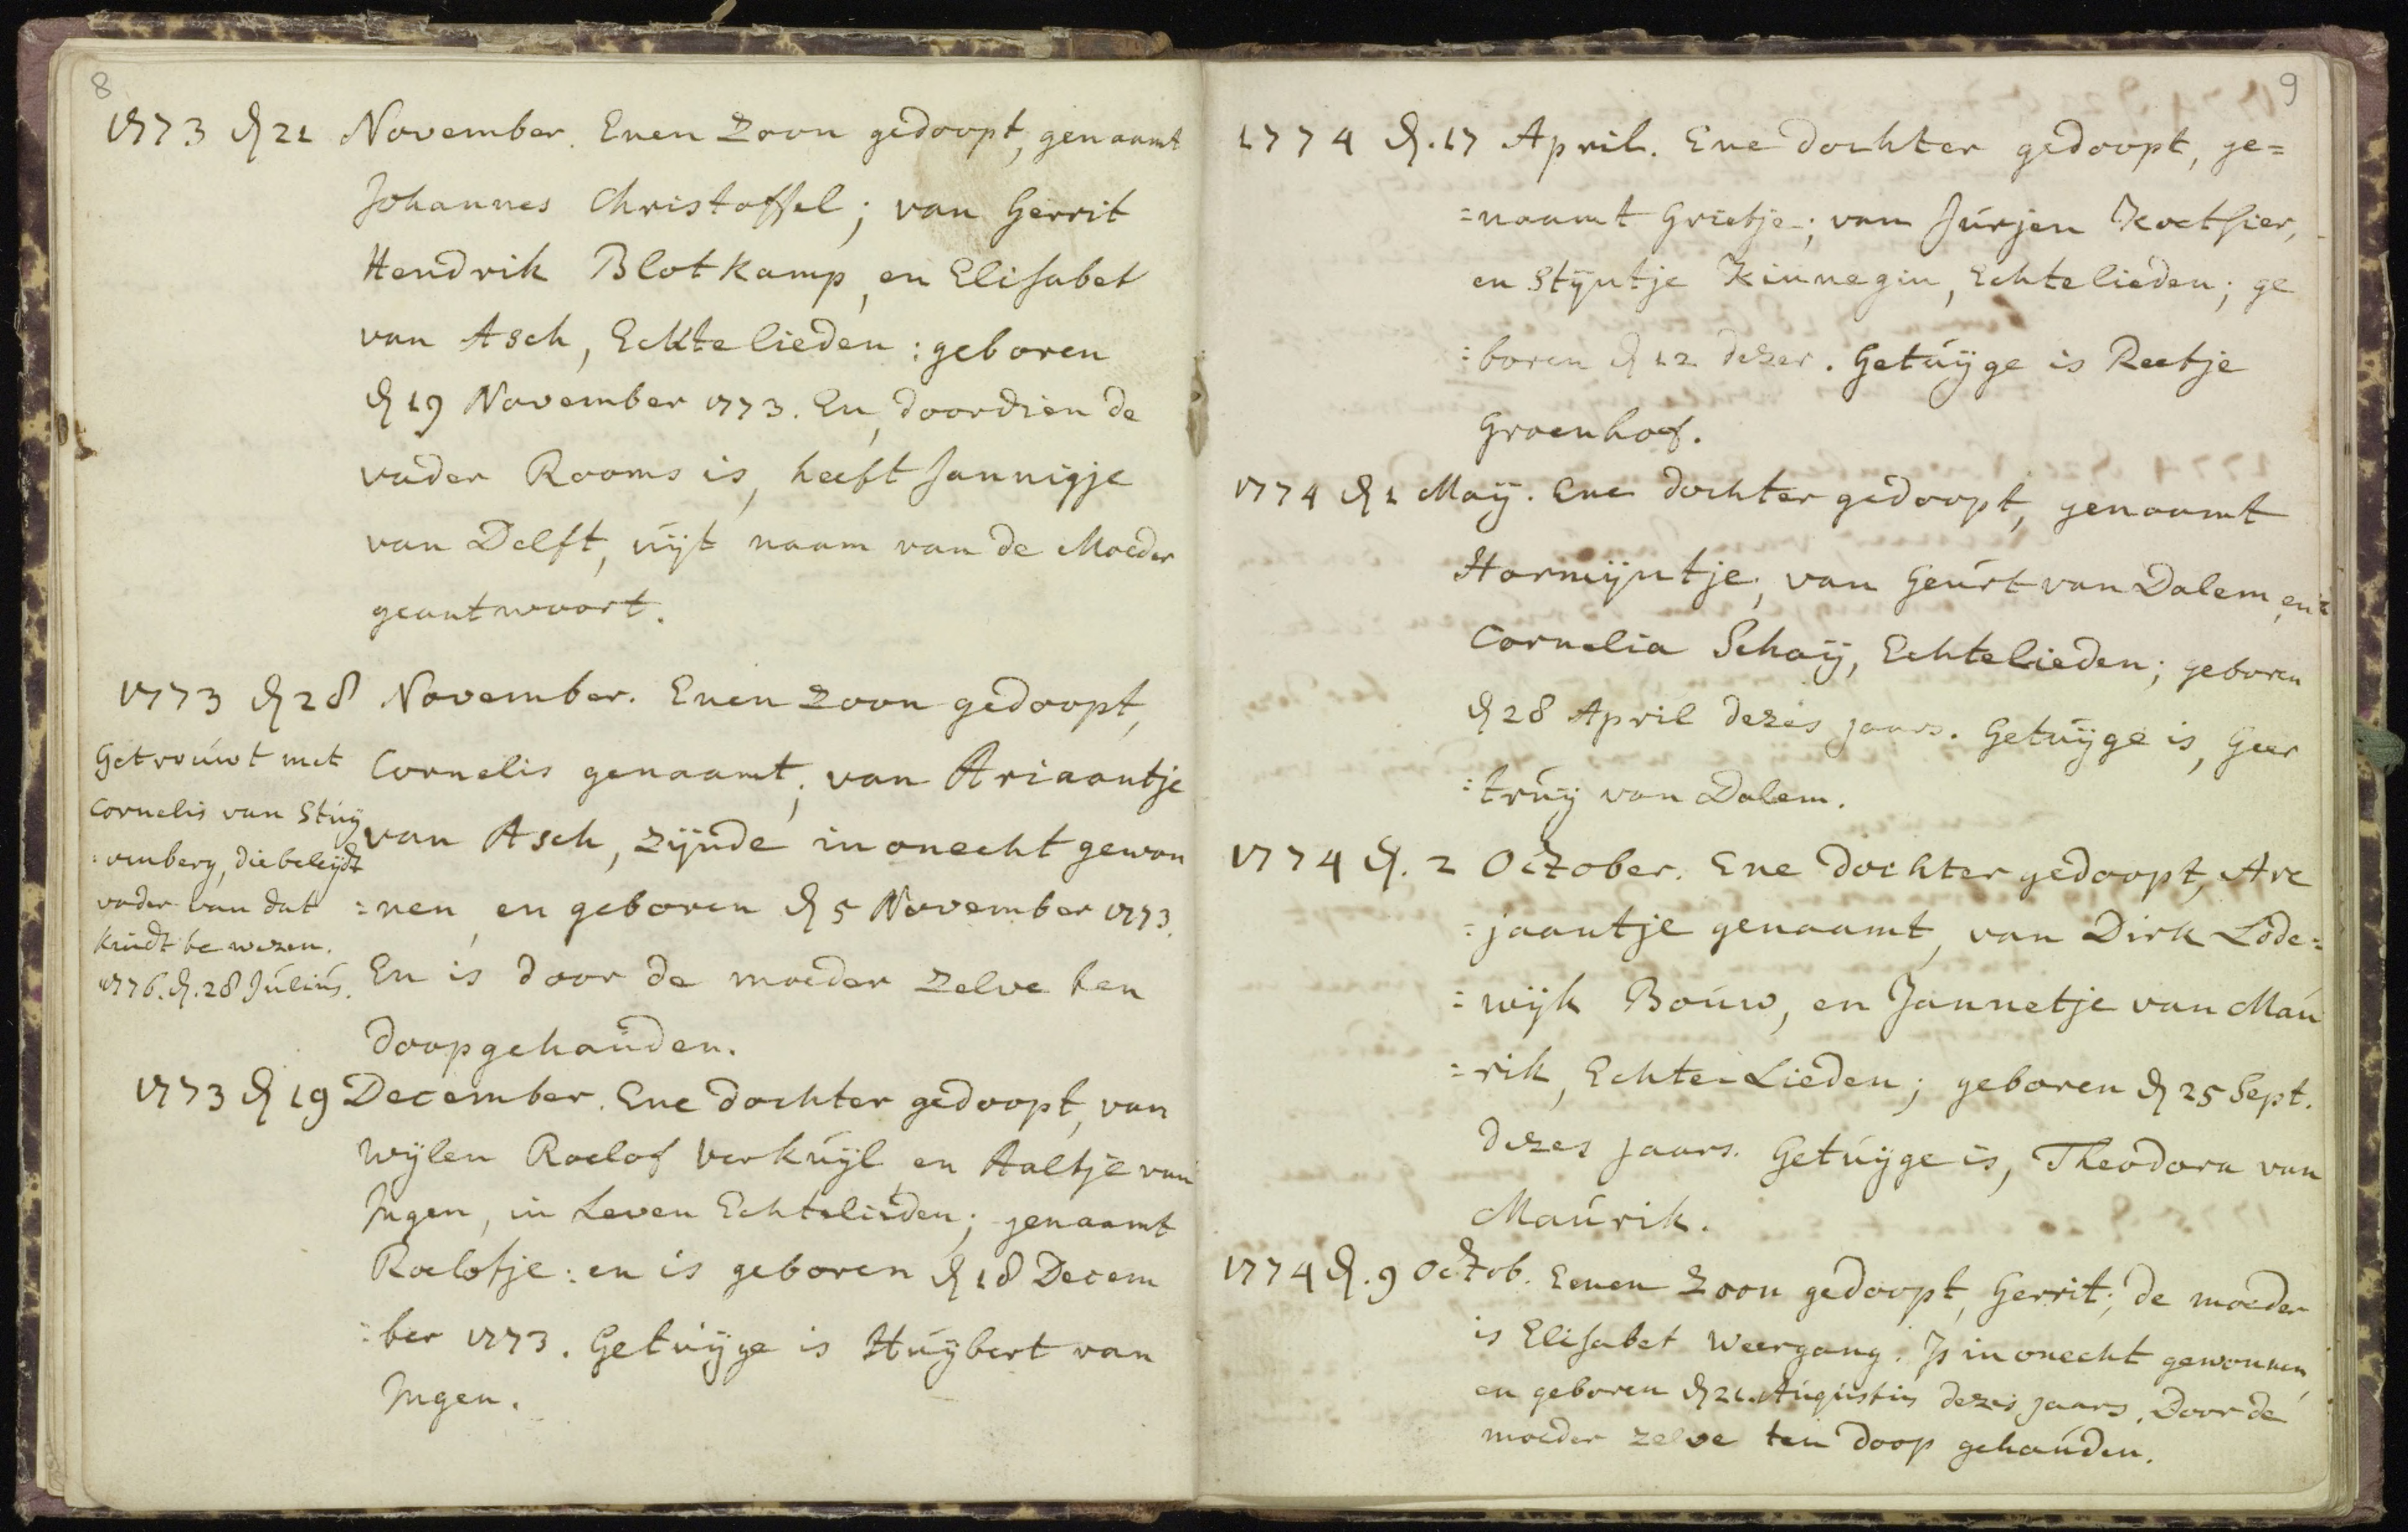 8
1773 d 21 November. Enen Zoon gedoopt, genaamt
Johannes Christoffel; van Gerrit
Hendrik Blotkamp, en Elisabet
van Asch, Echtelieden: geboren
d 19 November 1773. En, doordien de
vader Rooms is, heeft Jannigje
van Delft, uÿt naam van de Moeder
geantwoort.
1773 d 28 November. Enen Zoon gedoopt,
Cornelis genaamt; van Ariaantje
van Asch, zÿnde in onecht gewon
=nen, en geboren d 5 November 1773.
En is door de moeder zelve ten
doop gehaúden.
Getroúwt met
Cornelis van Stúÿ
:venberg, die beleÿdt
vader van dat
kindt te wezen.
1776. d. 28 Júliús.
1773 d 19 December. Ene dochter gedoopt, van
wÿlen Roelof Verkúÿl, en Aaltje van
Ingen, in Leven Echtelieden; genaamt
Roelofje: en is geboren d 18 Decem
:ber 1773. Getúÿge is Húÿbert van
Ingen.
9
1774 d. 17 April. Ene dochter gedoopt, ge=
=naamt Grietje; van Júrjen Koetsier,
en Stÿntje Kinnegin, Echtelieden; ge
:boren d 12 dezer. Getúÿge is Reetje
Groenhof.
1774 d 1 Maÿ. Ene dochter gedoopt, genaamt
Harmÿntje, van Geúrt van Dalem, en
Cornelia Schaÿ, Echtelieden; geboren
d 28 April dezes jaars. Getúÿge is, Geer
:trúÿ van Dalem.
1774 d. 2 October. Ene dochter gedoopt, Are
:jaantje genaamt, van Dirk Lode=
=wÿk Boúw, en Jannetje van Maú
=rik, Echte-Lieden; geboren d 25 Sept.
dezes jaars. Getúÿge is, Theodora van
Maúrik.
1774 d. 9 Octob. Eenen Zoon gedoopt, Gerrit; de moeder
is Elisabet Weergang. Is in onecht gewonnen,
en geboren d 21. Aúgústús dezes jaars. Door de
moeder zelve ten doop gehaúden.